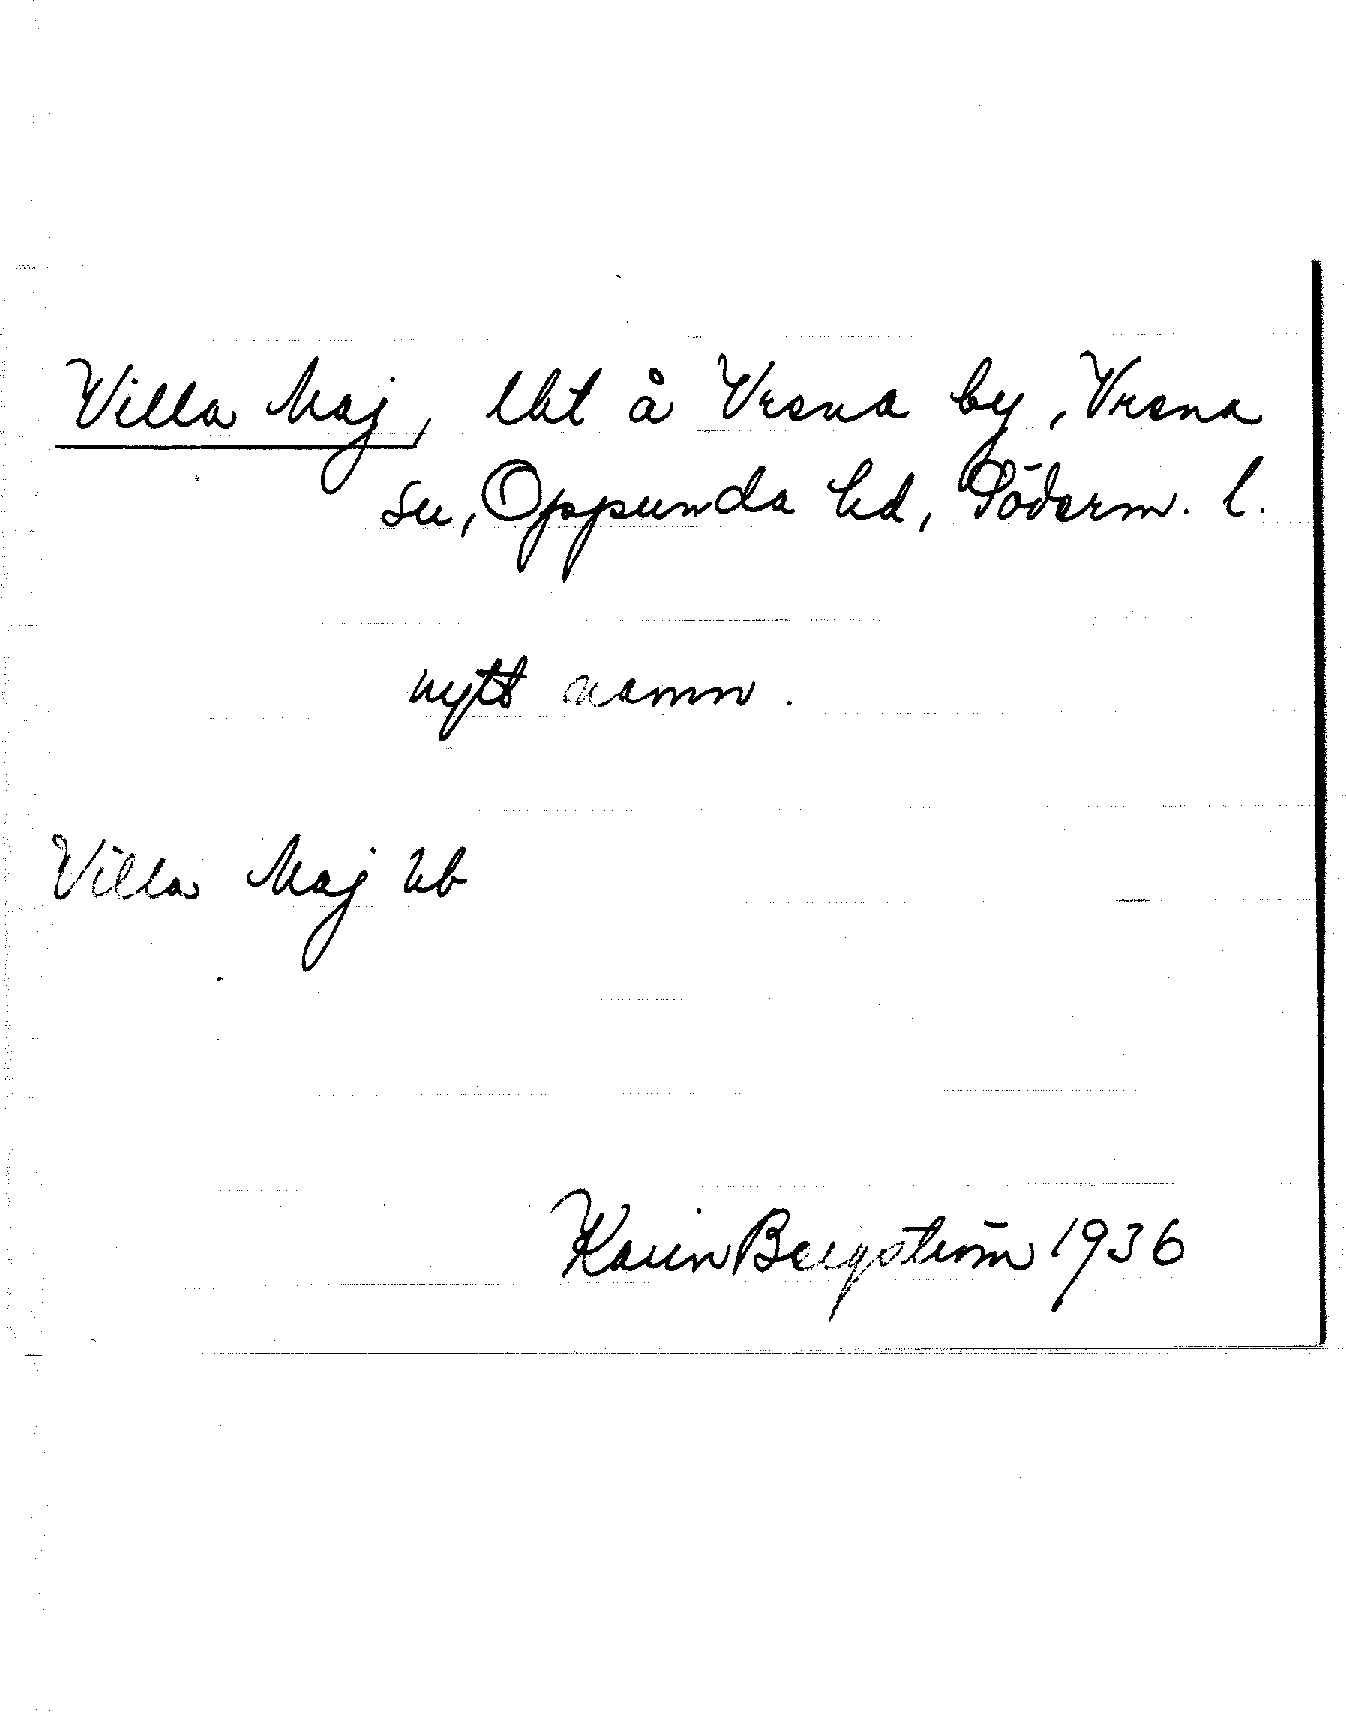 Villa Maj, lht å Vrena by, Vrena
sn, Oppunda hd, Söderm. l.
nytt namn.
Villa Maj Jb
Karin Bergström 1936